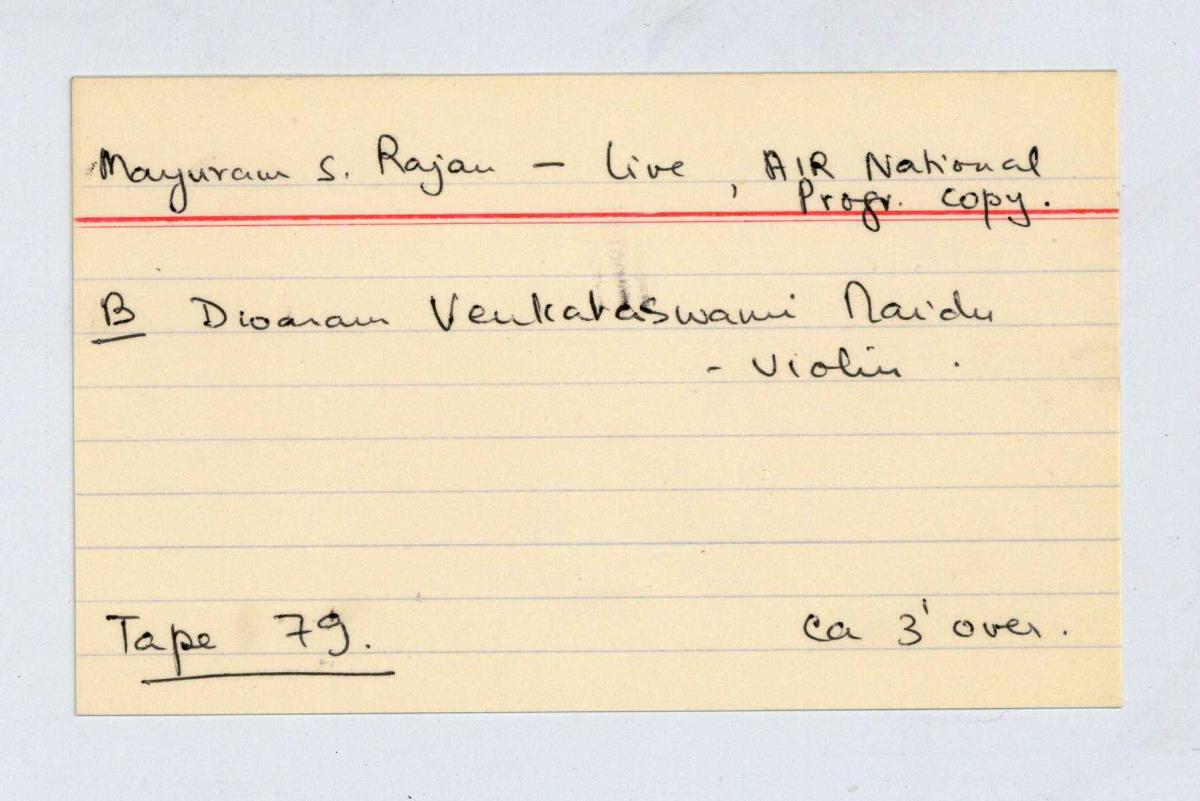 Mayuram S. Rajan — live, AIR National
Progr. copy.
B Dwaram Venkataswami Naidu
- Violin.
Tape 79.
ca 3' over.